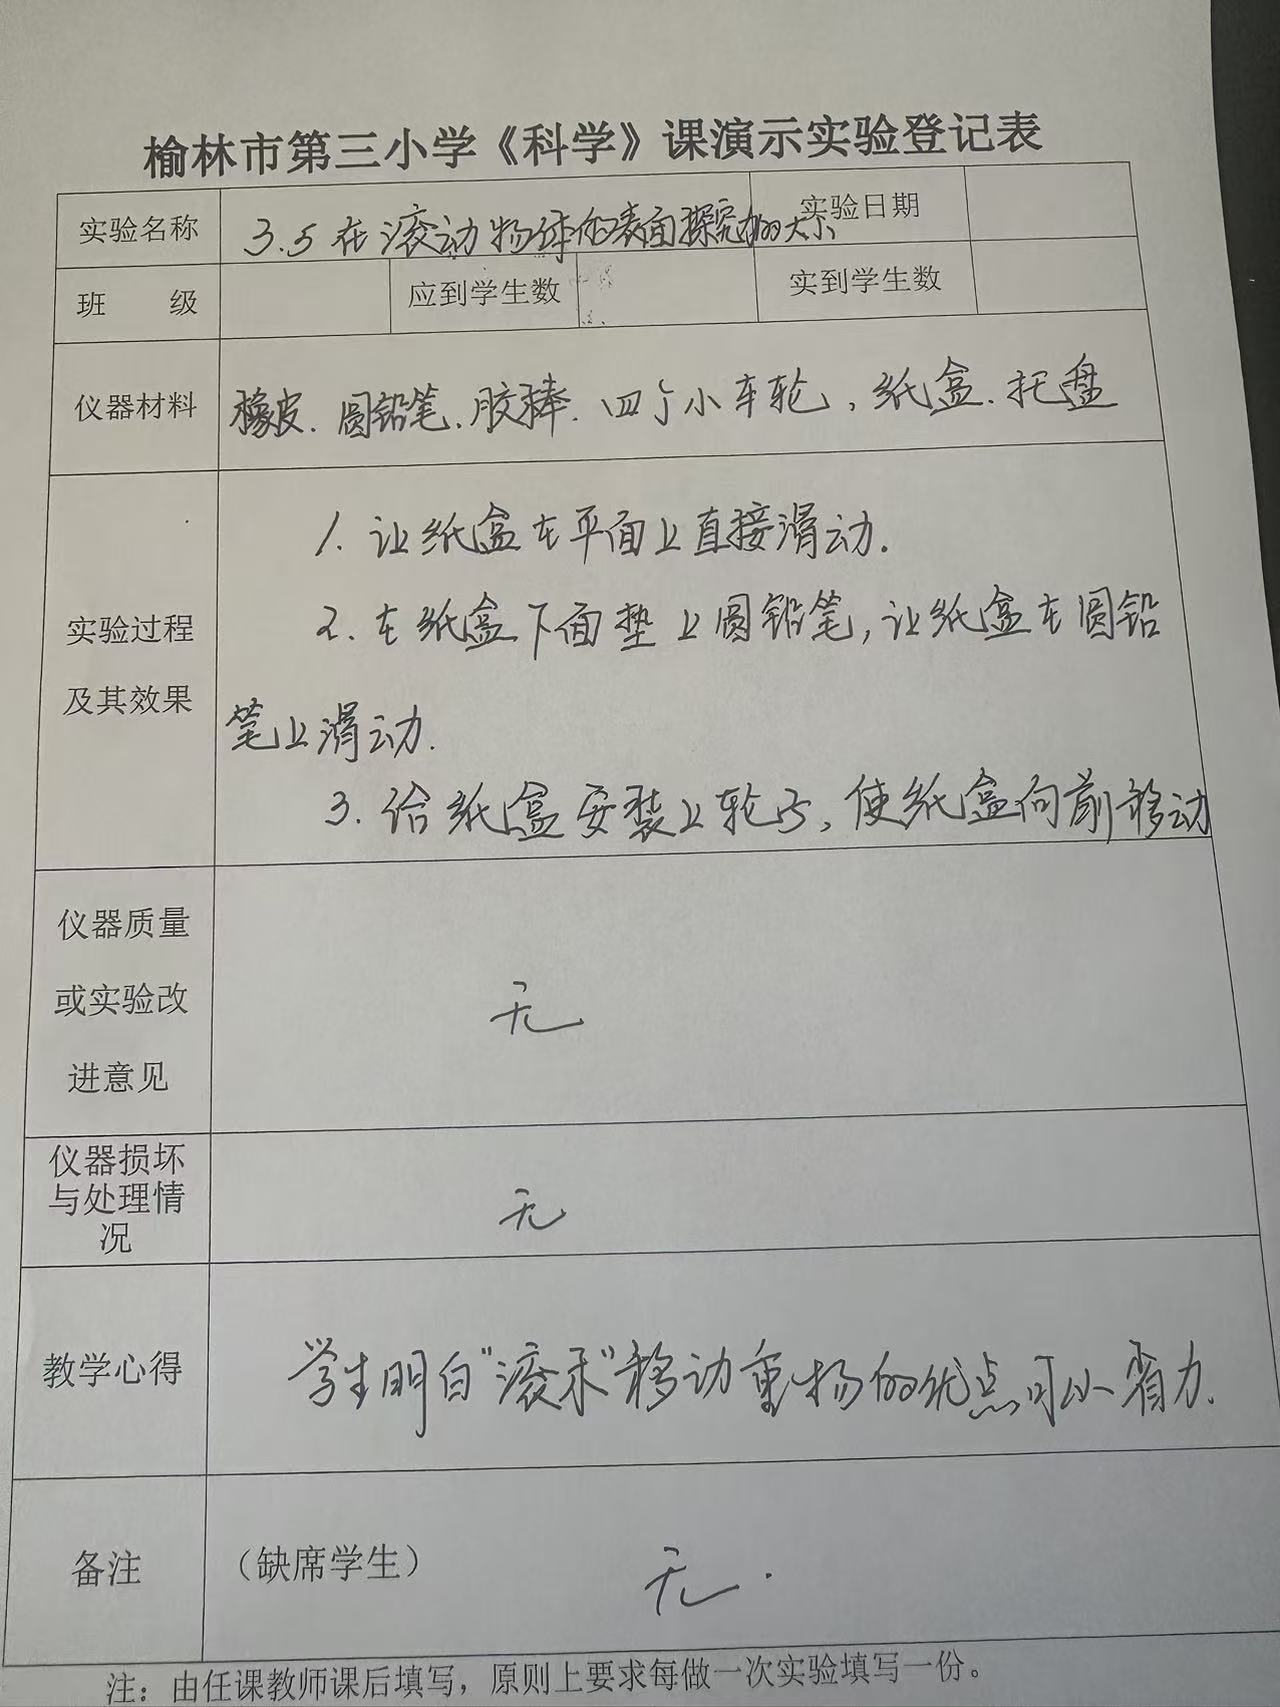 榆林市第三小学《科学》课演示实验登记表
实验名称 3.5在滚动物体的表面探究力的大小 实验日期
班 级 应到学生数 实到学生数
仪器材料 橡皮.圆铅笔.胶棒.四个小车轮,纸盒.托盘
1.让纸盒在平面上直接滑动.
2.在纸盒下面垫上圆铅笔,让纸盒在圆铅
实验过程
及其效果
笔上滑动.
3.给纸盒安装上轮子,使纸盒向前移动
仪器质量
或实验改
进意见
无
仪器损坏
与处理情
况
无
教学心得 学生明白"滚木"移动重物的优点可以省力.
备注 (缺席学生) 无.
注:由任课教师课后填写,原则上要求每做一次实验填写一份。